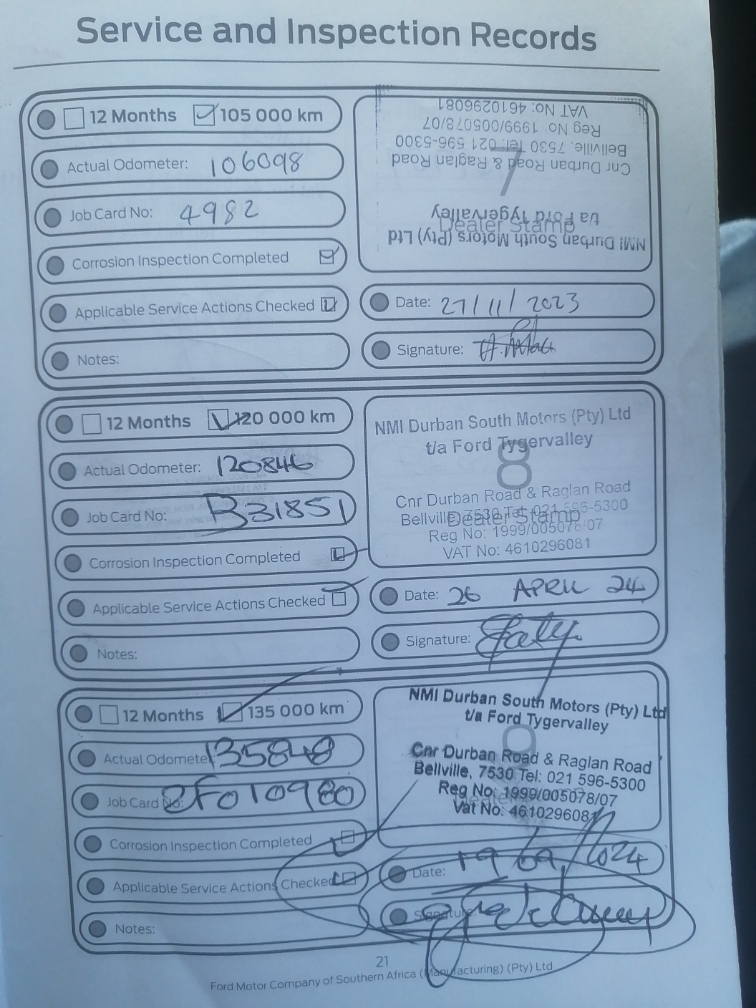 Service and Inspection Records
12 Months 105 000 km
Actual Odometer: 106098
Job Card No: 4982
Corrosion Inspection Completed
Applicable Service Actions Checked
Notes:
NMI Durban South Motors (Pty) Ltd
t/a Ford Tygervalley
Dealer Stamp
7
Cnr Durban Road & Raglan Road
Bellville. 7530 Tel: 021 596-5300
Reg No. 1999/005078/07
VAT No: 4610296081
Date: 27/11/2023
Signature:
12 Months 120 000 km
Actual Odometer: 120846
Job Card No: B31851
Corrosion Inspection Completed
Applicable Service Actions Checked
Notes:
NMI Durban South Motors (Pty) Ltd
t/a Ford Tygervalley
8
Cnr Durban Road & Raglan Road
Bellville, 7530 Tel: 021 596-5300
Dealer Stamp
Reg No: 1999/005078/07
VAT No: 4610296081
Date: 26 APRIL 24
Signature:
12 Months 135 000 km
Actual Odometer 135848
Job Card No: 2F010980
Corrosion Inspection Completed
Applicable Service Actions Checked
Notes:
NMI Durban South Motors (Pty) Ltd
t/a Ford Tygervalley
9
Cnr Durban Road & Raglan Road
Bellville, 7530 Tel: 021 596-5300
Reg No: 1999/005078/07
Vat No: 4610296081
Date: 19/09/2024
Signature
21
Ford Motor Company of Southern Africa (Manufacturing) (Pty) Ltd